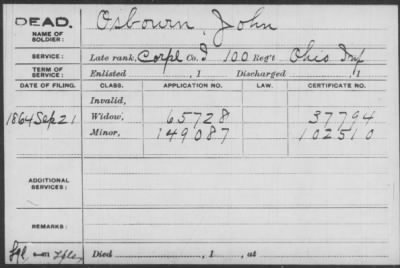 DEAD. Osbourn, John
NAME OF SOLDIER:
SERVICE: Late rank, Corpl Co. I 100 Reg't Ohio Inf
TERM OF SERVICE: Enlisted , 1 Discharged , 1
DATE OF FILING. CLASS. APPLICATION NO. LAW. CERTIFICATE NO.
Invalid,
1864 Sep 21 Widow, 65728 37794
Minor, 149087 102510
ADDITIONAL SERVICES:
REMARKS:
Died , 1 , at